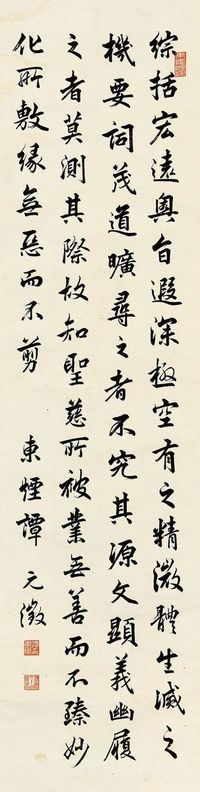 綜括宏遠奧旨遐深極空有之精微體生滅之
機要詞茂道曠尋之者不究其源文顯義幽履
之者莫測其際故知聖慈所被業無善而不臻妙
化所敷緣無惡而不剪
東煙譚元徵